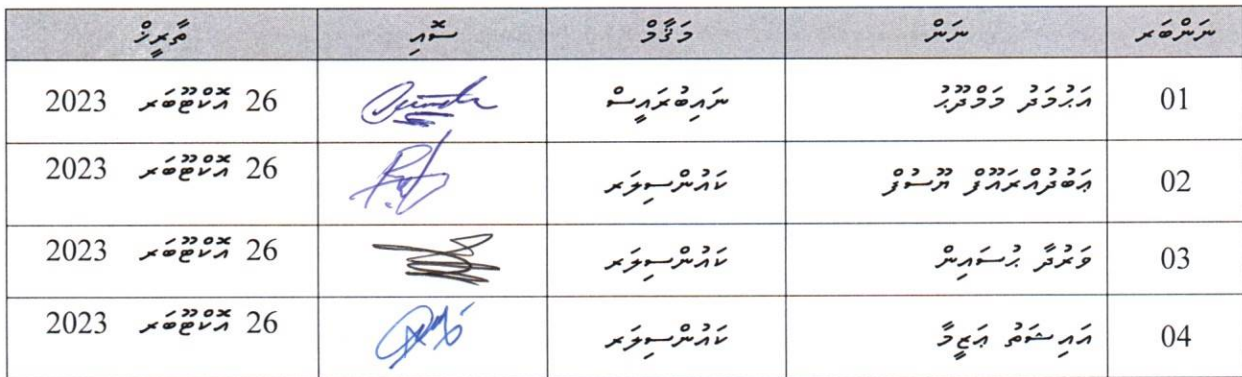 ނަންބަރ ނަން މަޤާމް ސޮއި ތާރީޚް
01 އަޙުމަދު މަމްދޫޙު ނައިބުރައީސް 26 އޮކްޓޫބަރ 2023
02 ޢަބުދުއްރައޫފް ޔޫސުފް ކައުންސިލަރ 26 އޮކްޓޫބަރ 2023
03 ވަރުދާ ޙުސައިން ކައުންސިލަރ 26 އޮކްޓޫބަރ 2023
04 އައިޝަތު ޢަޒީމާ ކައުންސިލަރ 26 އޮކްޓޫބަރ 2023